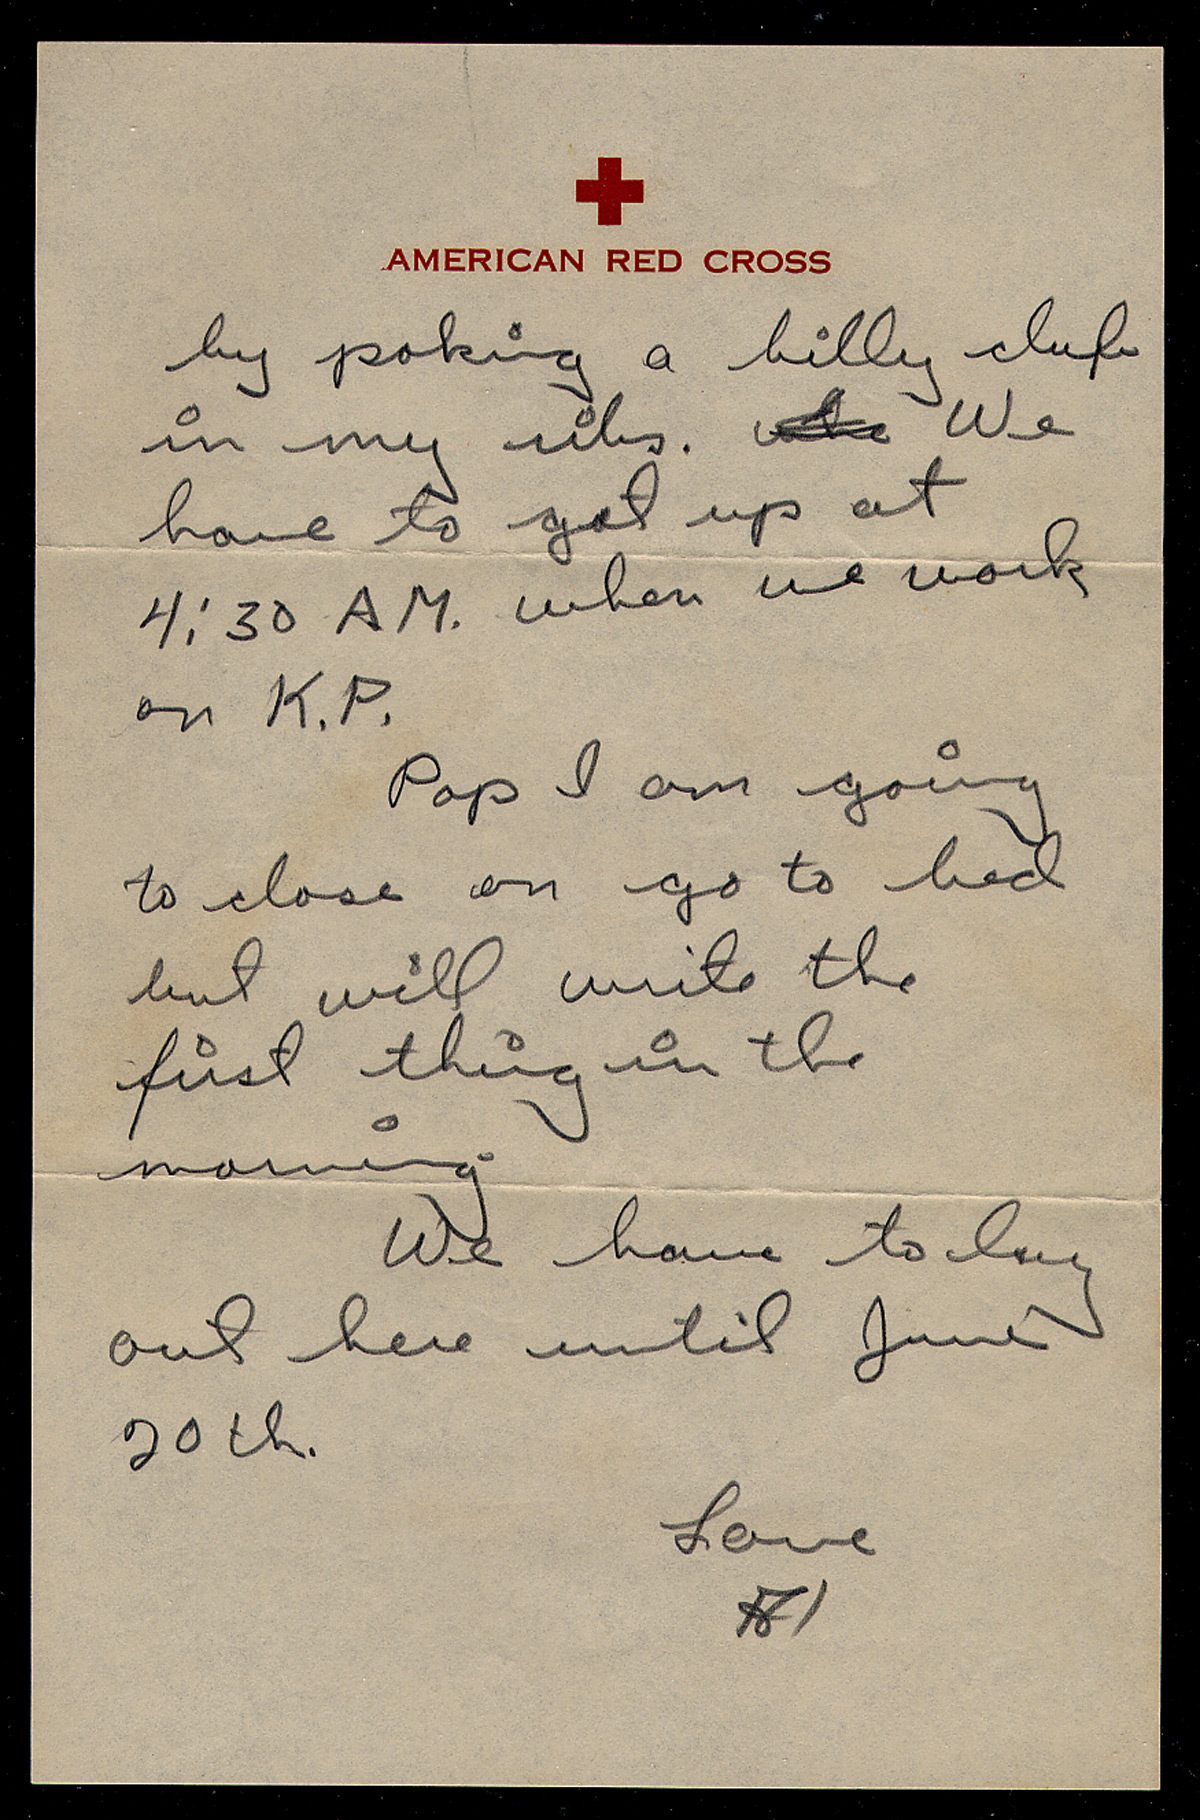 AMERICAN RED CROSS
by poking a billy club
in my ribs. We
have to get up at
4:30 A.M. when we work
on K.P.
Pop I am going
to close an go to bed
but will write the
first thing in the
morning
We have to lay
out here until June
20th.
Love
Al